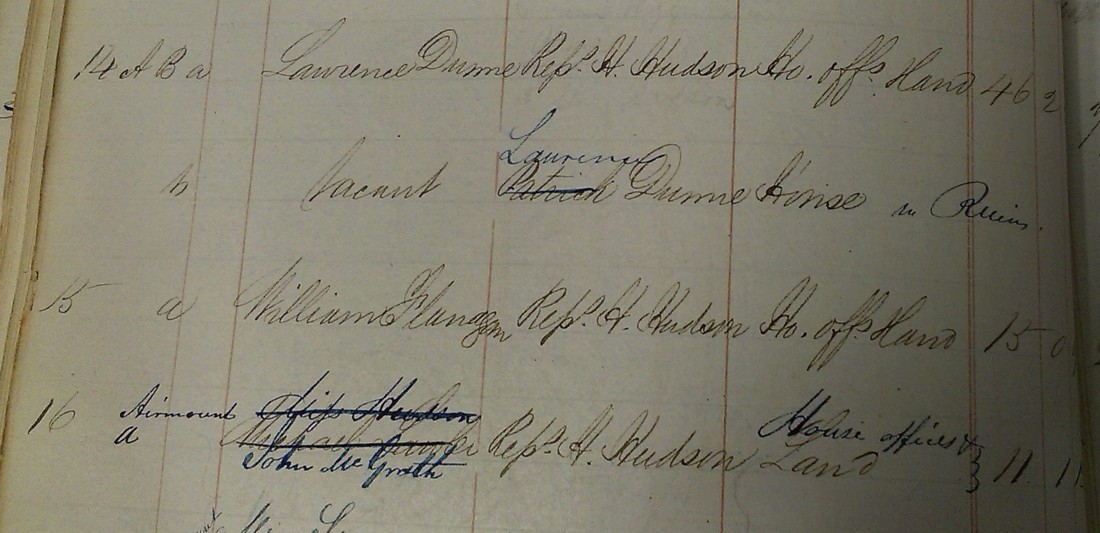 14 A B a Lawrence Dunne Reps. H. Hudson Ho. offs. Land 46 2
Laurence
b Vacant Patrick Dunne House in Ruins.
15 a William Flangan Reps. H. Hudson Ho. offs. Land 15 0
Airmount Miss Hudson House offices &
16 a Reps. H. Hudson Land 11 1
John McGrath